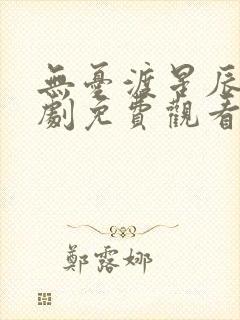 無憂渡星辰
劇免費觀看
鄭露娜